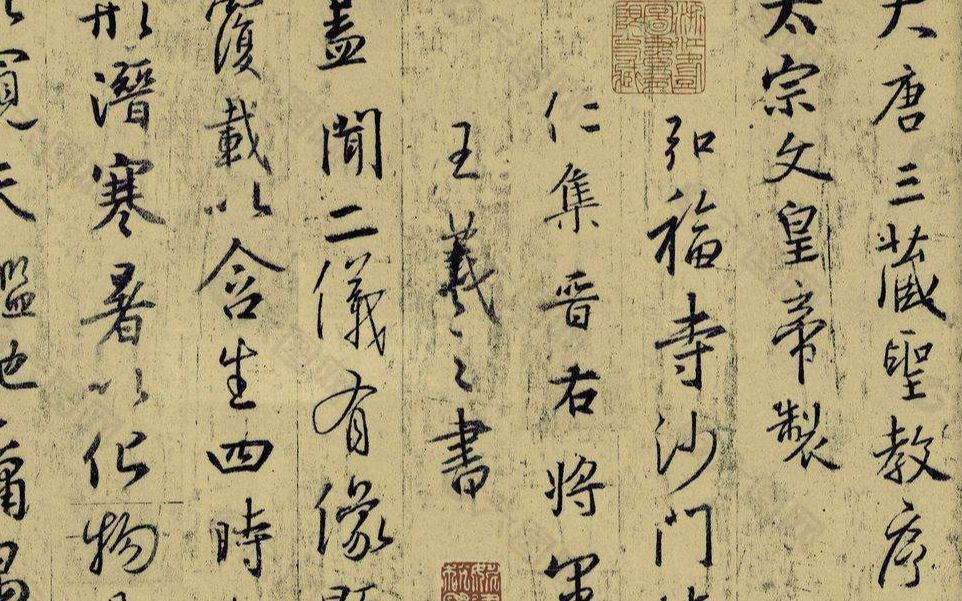 大唐三藏聖教序
太宗文皇帝製
弘福寺沙門
仁集晋右將軍
王羲之書
蓋聞二儀有像
覆載以含生四時
形潛寒暑以化物
窺天鑑地庸